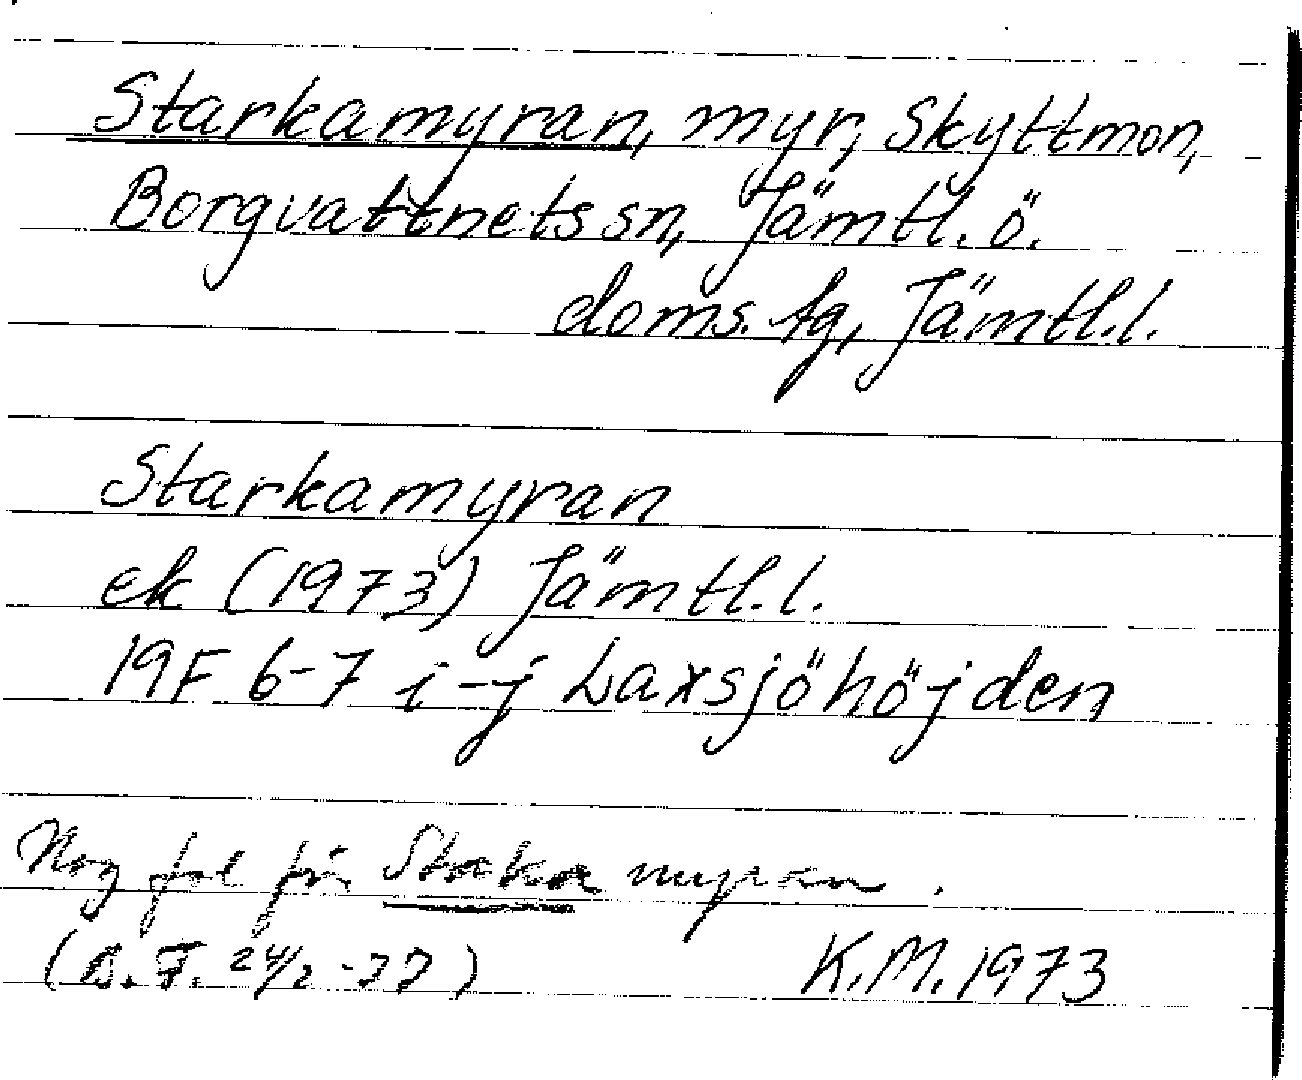 Starkamyran, myr, Skyttmon,
Borgvattnets sn, Jämtl. ö.
doms. tg, Jämtl. l.
Starkamyran
ek (1973) Jämtl. l.
19F 6-7 i-j Laxsjöhöjden
Nog fel för Stakamyran.
(B.F. 24/2 -77)
K.M. 1973